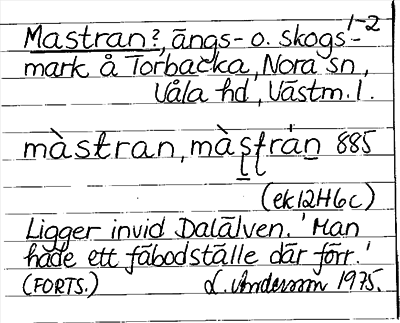 1-2
Mastran?, ängs- o. skogs-
mark å Torbacka, Nora sn,
Våla hd, Västm. l.
màstran, màstrán 885
(ek12H6c)
Ligger invid Dalälven. 'Man
hade ett fäbodställe där förr.'
(FORTS.) L. Andersson 1975.